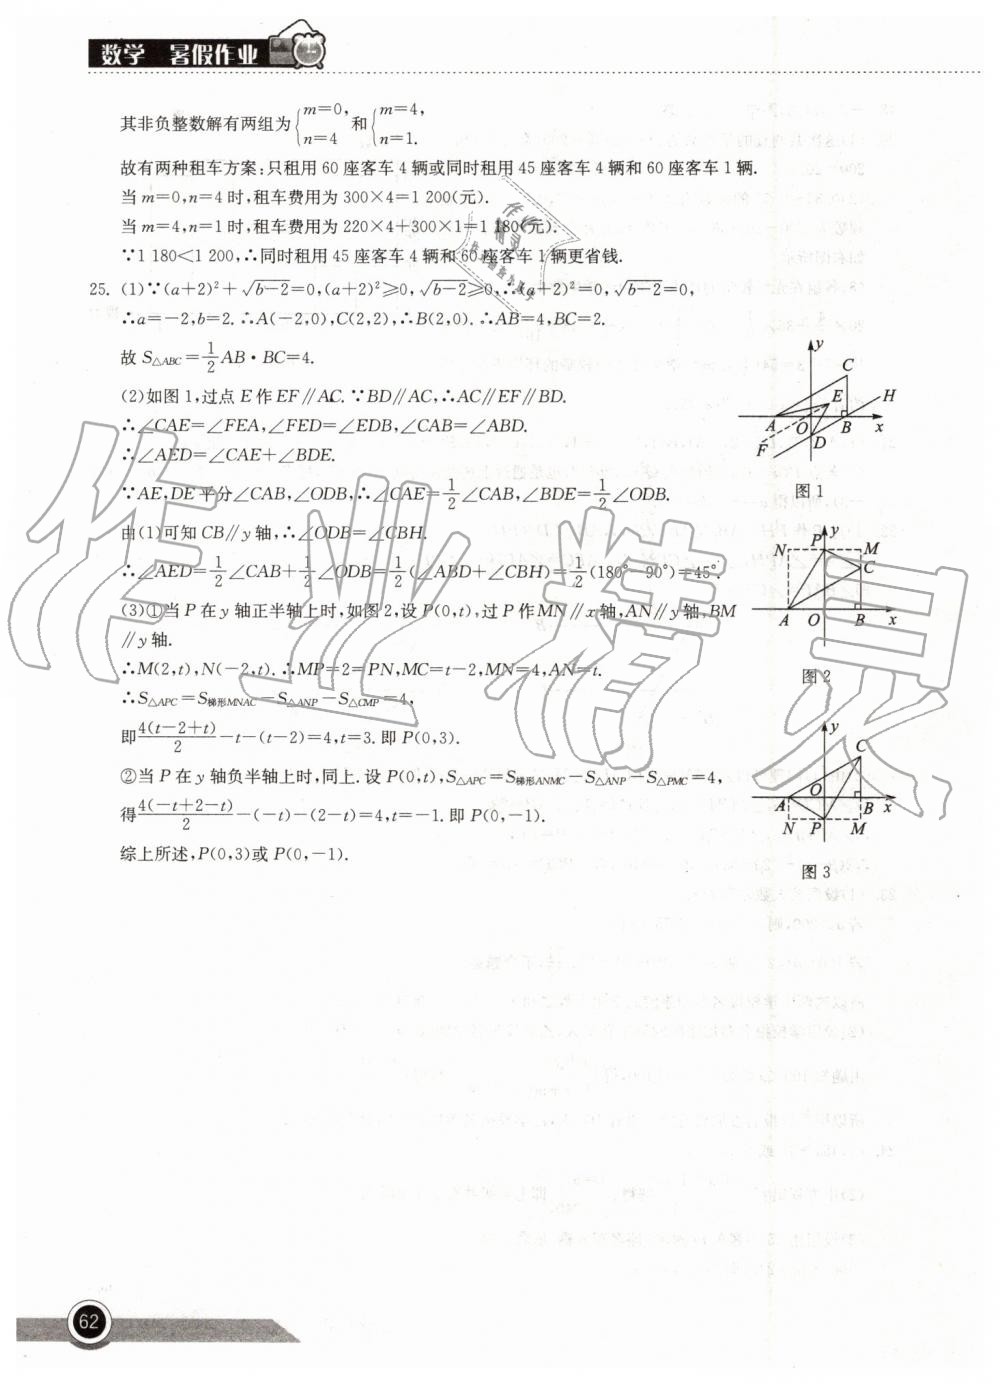 数学 暑假作业
其非负整数解有两组为{m=0, n=4 和{m=4, n=1.
故有两种租车方案:只租用 60 座客车 4 辆或同时租用 45 座客车 4 辆和 60 座客车 1 辆.
当 m=0,n=4 时,租车费用为 300×4=1 200(元).
当 m=4,n=1 时,租车费用为 220×4+300×1=1 180(元).
∵1 180<1 200,∴同时租用 45 座客车 4 辆和 60 座客车 1 辆更省钱.
25. (1)∵(a+2)²+√(b-2)=0,(a+2)²≥0,√(b-2)≥0,∴(a+2)²=0,√(b-2)=0,
∴a=-2,b=2.∴A(-2,0),C(2,2),∴B(2,0).∴AB=4,BC=2.
故 S△ABC=1/2 AB·BC=4.
(2)如图 1,过点 E 作 EF∥AC.∵BD∥AC,∴AC∥EF∥BD.
∴∠CAE=∠FEA,∠FED=∠EDB,∠CAB=∠ABD.
∴∠AED=∠CAE+∠BDE.
∵AE,DE 平分∠CAB,∠ODB,∴∠CAE=1/2∠CAB,∠BDE=1/2∠ODB.
由(1)可知 CB∥y 轴,∴∠ODB=∠CBH.
∴∠AED=1/2∠CAB+1/2∠ODB=1/2(∠ABD+∠CBH)=1/2(180°-90°)=45°.
(3)①当 P 在 y 轴正半轴上时,如图 2,设 P(0,t),过 P 作 MN∥x 轴,AN∥y 轴,BM
∥y 轴.
∴M(2,t),N(-2,t).∴MP=2=PN,MC=t-2,MN=4,AN=t.
∴S△APC=S梯形MNAC-S△ANP-S△CMP=4,
即 4(t-2+t)/2-t-(t-2)=4,t=3.即 P(0,3).
②当 P 在 y 轴负半轴上时,同上.设 P(0,t),S△APC=S梯形ANMC-S△ANP-S△PMC=4,
得 4(-t+2-t)/2-(-t)-(2-t)=4,t=-1.即 P(0,-1).
综上所述,P(0,3)或 P(0,-1).
y
C
E
H
A
O
B
x
F
D
图 1
y
P
N
M
C
A
O
B
x
图 2
y
C
O
A
B
x
N
P
M
图 3
作业精灵
62